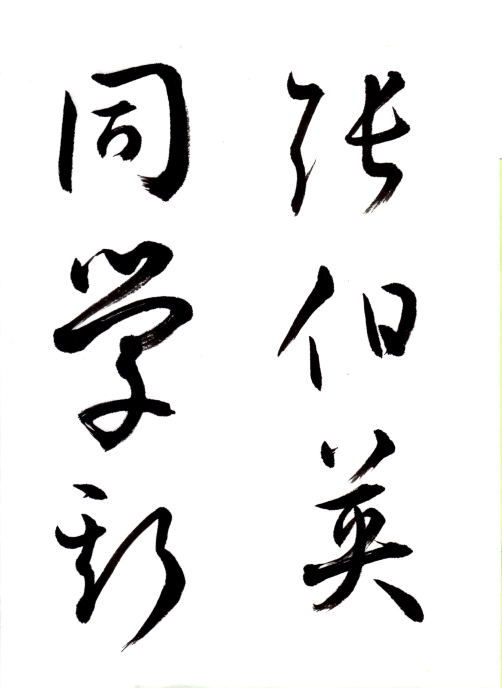 张伯英
同学